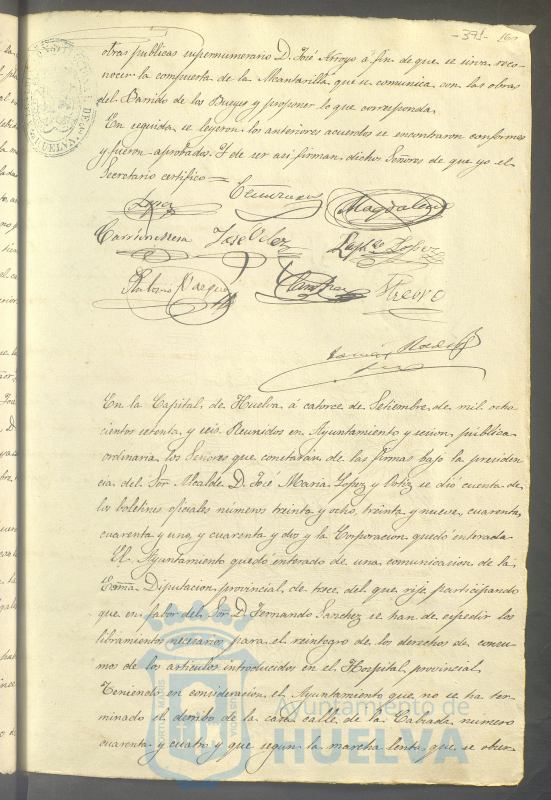 -371- 160
obras publicas supernumerario D. José Arroyo á fin de que se sirva reco-
nocer la compuerta de la Alcantarilla que se comunica con las obras
del Barrido de los Bueyes y proponer lo que corresponda.
En seguida se leyeron los anteriores acuerdos se encontraron conformes
y fueron aprobados. Y de ser asi firman dichos Señores de que yo el
Secretario certifico =
Carrion Mesa José Velez Lopez
Antonio Vazquez
En la Capital de Huelva á catorce de Setiembre de mil ocho
cientos setenta y seis Reunidos en Ayuntamiento y sesion publica
ordinaria los Señores que constarán de las firmas bajo la presiden-
cia del Sor Alcalde D. José Maria Lopez y Ortiz se dió cuenta de
los boletines oficiales numeros treinta y ocho, treinta y nueve, cuarenta,
cuarenta y uno, y cuarenta y dos y la Corporacion quedó enterada
El Ayuntamiento quedó enterado de una comunicacion de la
Exma Diputacion provincial, de trece del que rije participando
que en fabor del Sor D. Fernando Sanchez se han de espedir los
libramientos necesarios para el reintegro de los derechos de consu-
mos de los articulos introducidos en el Hospital provincial
Teniendo en consideracion el Ayuntamiento que no se ha ter-
minado el derribo de la casa calle de la Calzada numero
cuarenta y cuatro y que segun la marcha lenta que se obser-
Ayuntamiento de
HUELVA